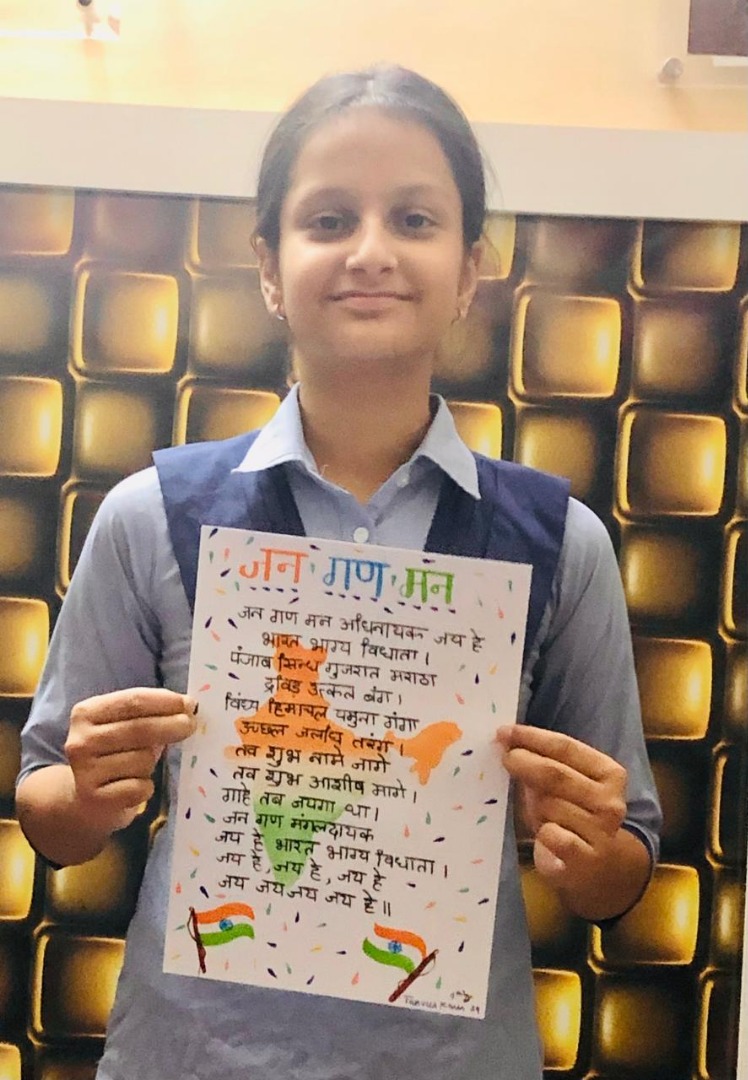 जन गण मन
जन गण मन अधिनायक जय हे
भारत भाग्य विधाता।
पंजाब सिन्ध गुजरात मराठा
द्रविड़ उत्कल बंग।
विंध्य हिमाचल यमुना गंगा
उच्छल जलधि तरंग।
तव शुभ नामे जागे
तव शुभ आशीष मागे।
गाहे तब जयगा था।
जन गण मंगलदायक
जय हे भारत भाग्य विधाता।
जय हे, जय हे, जय हे
जय जय जय जय हे॥